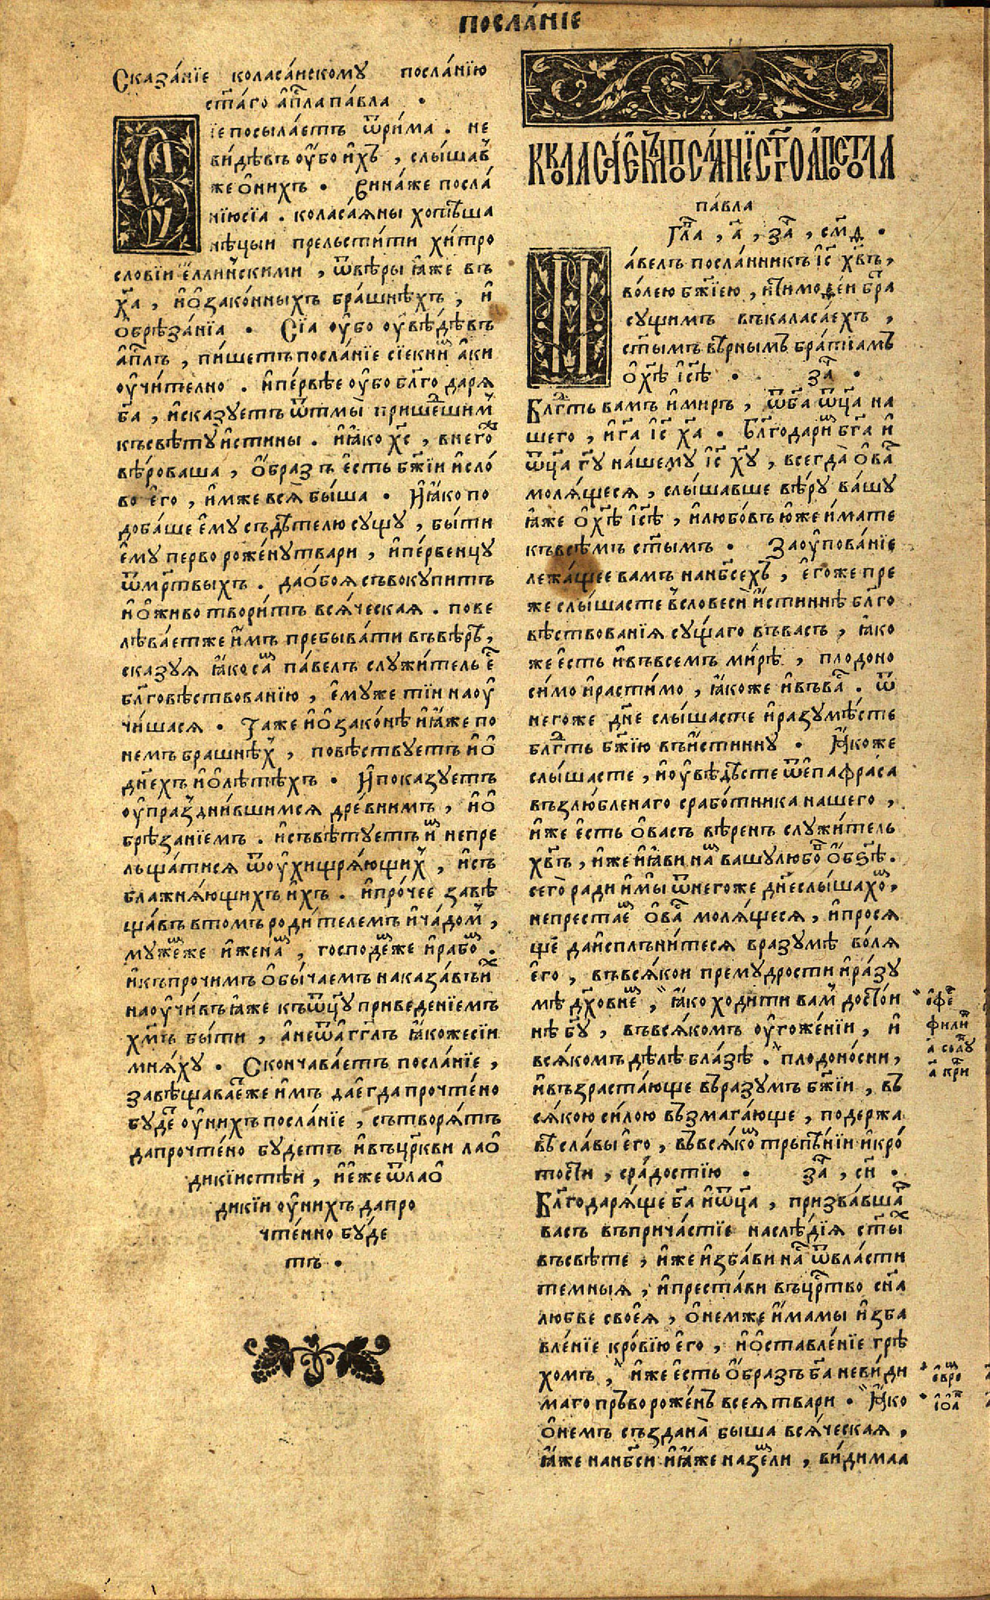 ПОСЛА́НІЕ
Сказа́нїе коласа́нскому посла́нїю
ст҃а́го а҆п҃ла па́вла .
Сїе посыла́етъ ѿри́ма . не
ви́дѣвъ оу҆́бо и҆́хъ , слы́шав
же ѻ҆ни́хъ . Вина́же посла́
нїю сїа . колас̾а́яны хотѣ́вша
нѣ́цыи прельсти́ти хи́тро
словїи е҆́ллиньскими , ѿвѣ́ры ꙗ҆́же въ
х҃а , и҆ѻ҆зако́нныхъ бра́шнѣхъ , и҆
ѻ҆брѣ́занїа . Сїа оу҆́бо оу҆вѣ́дѣвъ
а҆п҃лъ , пи́шетъ посла́нїе сїе к ни́м а҆́ки
оу҆чи́телно . и҆пе́рвѣе оу҆́бо бл҃годаря́
б҃а , и҆сказу́етъ ѿтмы̀ прише́дшим
къ свѣ́ту и҆́стины . и҆ꙗ҆́ко х҃с , в него́же
вѣ́роваша , ѻ҆́бразъ є҆́сть бж҃їи и҆сло́
во є҆го̀ , и҆́мже вся̀ бы́ша . И҆ꙗ҆́ко по
доба́ше є҆му̀ съдѣ́телю су́щу , бы́ти
є҆му̀ перворожену̀ твари , и҆пе́рвенцу
ѿме́ртвыхъ . да ѻ҆боя̀ съвокупи́тъ
и҆ѻ҆животвори́тъ вся́ческая . пове
лѣва́етже и҆̀мъ пребыва́ти въвѣ́рѣ ,
сказуя ꙗ҆́ко са́м па́велъ служи́тель є҆́
бл҃говѣствованїю , є҆му́же тїи наоу҆
чи́шася . Та́же и҆ѻ҆зако́нѣ и҆ꙗ҆́же по
немъ бра́шнѣх , повѣ́ствуетъ и҆ѻ҆
дн҃ехъ и҆ѻ҆лѣ́тѣхъ . И҆показу́етъ
оу҆праздни́вшимся дре́внимъ , и҆ѻ҆
брѣ́занїемъ . и҆съвѣ́туетъ и҆м непре
льща́тися ѿоу҆хищря́ющих , и҆съ
блажня́ющихъ и҆́хъ . и҆про́чее завѣ
ща́въ втомъ роди́телемъ и҆ча́дом ,
муже́мже и҆жена́м , господе́мже и҆рабо́м .
и҆къпро́чимъ ѻ҆бы́чаемъ наказа́въ и҆̀х
наоу҆чи́въ ꙗ҆́же къѿц҃у приведе́нїемъ
хм҃ъ бы́ти , а҆неѿа҆гг҃лъ ꙗ҆́коже сїи
мня́ху . Сконча́ваетъ посла́нїе ,
завѣщава́етже и҆мъ да є҆гда прочте́но
бу́де оу҆ни́хъ посла́нїе , сътворя́тъ
да прочте́но бу́детъ и҆въцр҃кви лаѻ҆
дикїистѣ́и , и҆є҆́же ѿлаѻ҆
дикїи оу҆ни́хъ да про
чте́нно бу́де
тъ .
К КОЛАСАЕМ ПОСЛАНЇЕ СТГО АПОСТОЛА
па́вла
Гл҃а , а҃ , за҃ , см҃д .
Па́велъ посла́нникъ і҆с҃ хв҃ъ ,
во́лею бж҃їею , и҆тимоѳеи бра́
су́щимъ въкаласа́ехъ ,
ст҃ымъ вѣ́рнымъ бра́тїамъ
ѻ҆хѣ҃ і҆сѣ҃ . за҃ .
Бл҃гть ва́мъ и҆ми́ръ , ѿб҃а ѿц҃а на
шего , и҆г҃а і҆с҃ х҃а . Благодари́м бг҃а и҆
ѿц҃а г҃у на́шему і҆с҃ х҃у , всегда̀ ѻ҆ва́с
моля́щеся , слы́шавше вѣ́ру ва́шу
ꙗ҆́же ѻ҆хѣ҃ і҆сѣ҃ , и҆любо́въ ю҆́же и҆́мате
къвсѣ́мъ ст҃ымъ . За оу҆пова́нїе
лежа́щее вамъ нанб҃сехъ , є҆го́же пре
же слы́шасте в словеси̇̀ и҆́стиннѣ бл҃го
вѣ́ствованїя су́щаго въва́съ , ꙗ҆́ко
же є҆́сть и҆въвсе́мъ ми́рѣ , плодоно
си́мо и҆расти́мо , ꙗ҆́коже и҆въва́с . ѿ
него́же дн҃е слы́шасте и҆разумѣ́сте
бл҃гть бж҃їю въи҆́стинну . Ꙗ҆́коже
слы́шасте , и҆оу҆вѣ́дѣсте ѿє҆пафра́са
възлю́бленаго срабо́тника на́шего ,
и҆́же є҆́сть ѻ҆ва́съ вѣ́ренъ служи́тель
хв҃ъ , и҆́же и҆ꙗ҆ви на́м ва́шу любо́в ѻ҆ дс҃ѣ .
сего̀ ра́ди и҆мы̀ ѿнего́же дн҃е слы́шахо́м ,
непреста́ем ѻ҆ва́с моля́щеся , и҆прося
ще да и҆сплъни́теся вразу́мѣ во́ля
є҆го̀ , въвся́кои прему́дрости и҆ра́зу
мѣ дх҃о́внем , ꙗ҆́ко ходи́ти ва́м досто́и
нѣ б҃у , въвся́комъ оу҆гоже́нїи , и҆
вся́комъ дѣ́лѣ бла́зѣ . плодоно́сни ,
и҆възраста́юще въра́зумъ бж҃їи , въ
ся́кою си́лою възмага́юще , по держа́
вѣ сла́вы є҆го̀ , въвся́ком трьпѣ́нїи и҆кро́
тости , сра́достїю . за҃ , сн҃ .
Благодаря́ще б҃а и҆ѿц҃а , призва́вша́г
ва́съ въприча́стїе наслѣ́дїя ст҃ых
въсвѣ́те , и҆́же и҆зба́ви на́с ѿвла́сти
те́мныя , и҆преста́ви въцр҃тво сн҃а
любве̇ своея҆̀ , ѻ҆не́мже и҆́мамы и҆зба
вле́нїе кро́вїю є҆го̀ , и҆ѻ҆ставле́нїе грѣ
хо́мъ , и҆́же є҆́сть ѻ҆́бразъ б҃а неви́ди
маго пръворожде́нъ всея̀ тва́ри . Ꙗ҆́ко
ѻ҆не́мъ създана̀ бы́ша вся́ческая ,
ꙗ҆́же нанб҃си и҆ꙗ҆́же на зе́мли , ви́димаа
є҆фе́
фили́п
а҃ солу́
а҃ кри́н
є҆вре́
і҆ѻ҆а́н